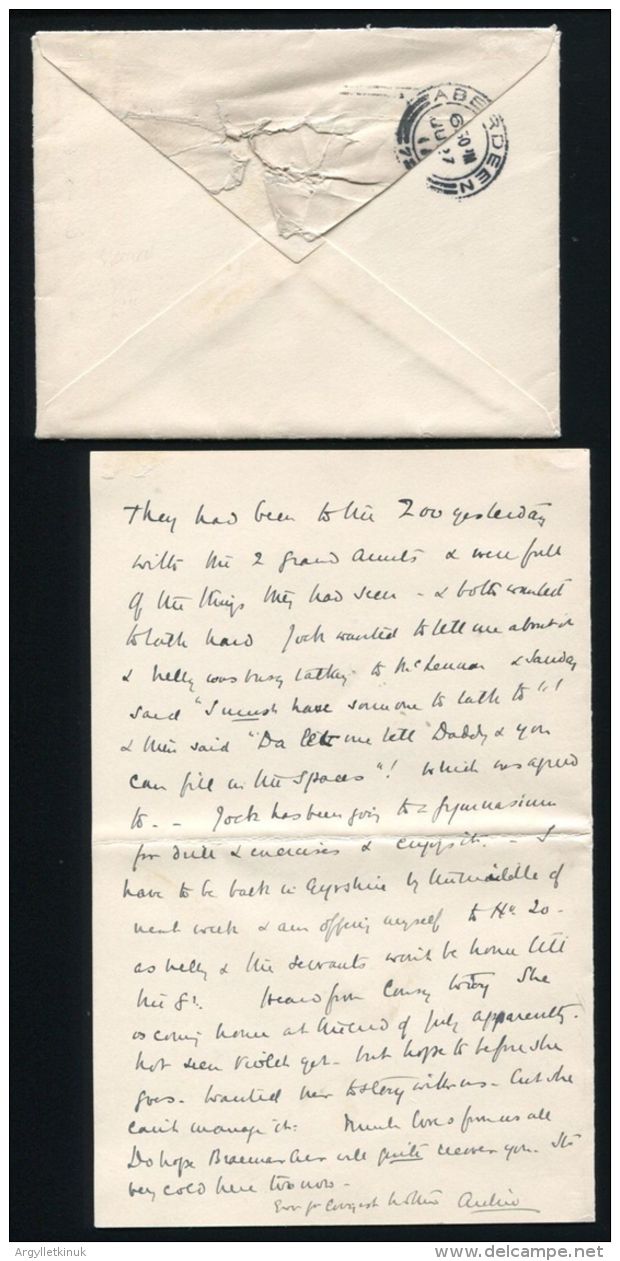 ABERDEEN
6 30 PM
JU 27
They had been to the Zoo yesterday
with the 2 grand aunts & were full
of the things they had seen - & both wanted
to talk hard Jock wanted to tell me about it
& Nelly was busy talking to McLennan & Sandy
said "I must have someone to talk to"!
& then said "Da let me tell Daddy & you
can fill in the spaces"! which was agreed
to. - Jock has been going to a gymnasium
for drill & exercises & enjoys it. - I
have to be back in Ayrshire by the middle of
next week & am offering myself to
as Nelly & the servants won't be home till
the 8th. Heard from today She
is coming home at the end of July apparently.
Not seen Violet yet - but hope to before she
goes. Wanted her to stay with us - but she
can't manage it. Much love from us all
Do hope Braemar air will quite recover you. It's
very cold here too now -
Ever yr
Delcampe.net
Argylletkinuk